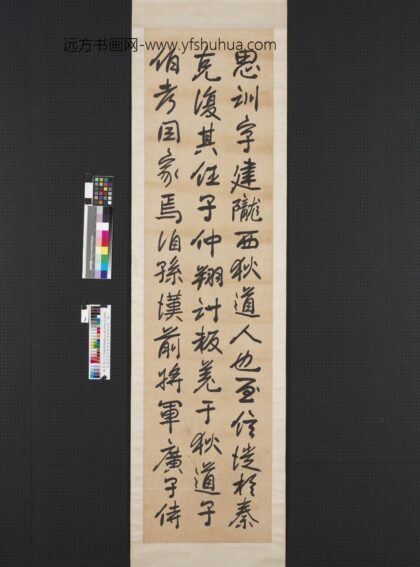 远方书画网-www.yfshuhua.com
思訓字建隴西狄道人也至信徙於秦
克復其任子仲翔討叛羌于狄道子
伯考因家焉洎孫漢前將軍廣子侍